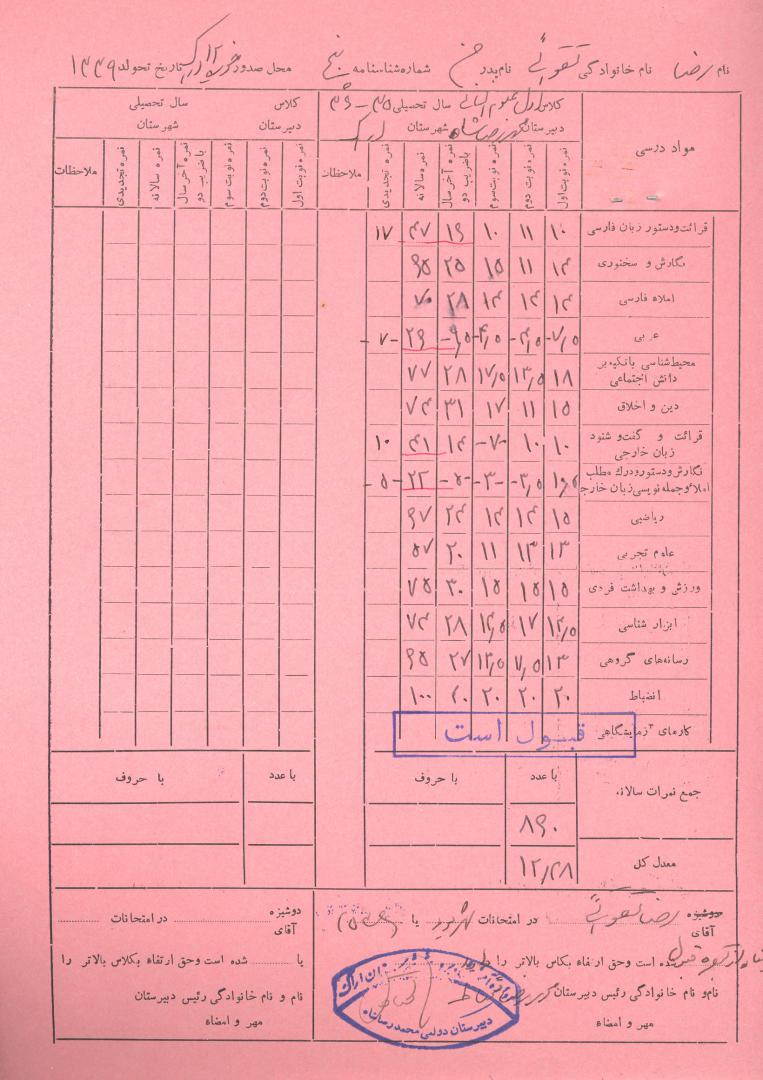 نام رضا نام خانوادگی تقوائی نام پدر شماره شناسنامه پنج محل صدور اراک تاریخ تحولد ۱۳۳۹
مواد درسی
کلاس اول علوم انسانی سال تحصیلی ۳۵-۳۶
دبیرستان محمدرضاشاه شهرستان اراک
کلاس سال تحصیلی
دبیرستان شهرستان
نمره نوبت اول نمره نوبت دوم نمره نوبت سوم نمره آخر سال با ضریب دو نمره سالانه نمره تجدیدی ملاحظات
نمره نوبت اول نمره نوبت دوم نمره نوبت سوم نمره آخر سال با ضریب دو نمره سالانه نمره تجدیدی ملاحظات
قرائت و دستور زبان فارسی ۱۰ ۱۱ ۱۰ ۱۶ ۴۷ ۱۷
نگارش و سخنوری ۱۴ ۱۱ ۱۵ ۲۵ ۶۵
املاء فارسی ۱۴ ۱۴ ۱۴ ۲۸ ۷۰
عربی -۷/۵ -۴/۵ ۲۹ -۷-
محیط‌شناسی با تکیه بر دانش اجتماعی ۱۸ ۱۳/۵ ۱۷/۵ ۲۸ ۷۷
دین و اخلاق ۱۵ ۱۱ ۱۷ ۳۱ ۷۴
قرائت و گفت و شنود زبان خارجی ۱۰ ۱۰ -۷ ۱۴ ۴۱ ۱۰
نگارش و دستور و درک مطلب املاء و جمله نویسی زبان خارجی ۱۰/۵ -۳/۵ -۳- -۵- ۲۲ -۵-
ریاضی ۱۵ ۱۴ ۱۴ ۲۴ ۶۷
علوم تجربی ۱۳ ۱۳ ۱۱ ۲۰ ۵۷
ورزش و بهداشت فردی ۱۵ ۱۵ ۱۵ ۳۰ ۷۵
ابزار شناسی ۱۴/۵ ۱۷ ۱۴/۵ ۲۸ ۷۴
رسانه‌های گروهی ۱۳ ۷/۵ ۲۷ ۶۵
انضباط ۲۰ ۲۰ ۲۰ ۴۰ ۱۰۰
کارهای آزمایشگاهی
قبول است
جمع نمرات سالانه با عدد با حروف با عدد با حروف
۸۹۰
معدل کل ۱۲/۲۸
دوشیزه آقای رضا تقوائی در امتحانات شهریور یا
شده است وحق ارتقاء بکلاس بالاتر را
نام و نام خانوادگی رئیس دبیرستان
مهر و امضاء
دبیرستان دولتی محمدرضاشاه
دوشیزه آقای در امتحانات
یا شده است وحق ارتقاء بکلاس بالاتر را
نام و نام خانوادگی رئیس دبیرستان
مهر و امضاء